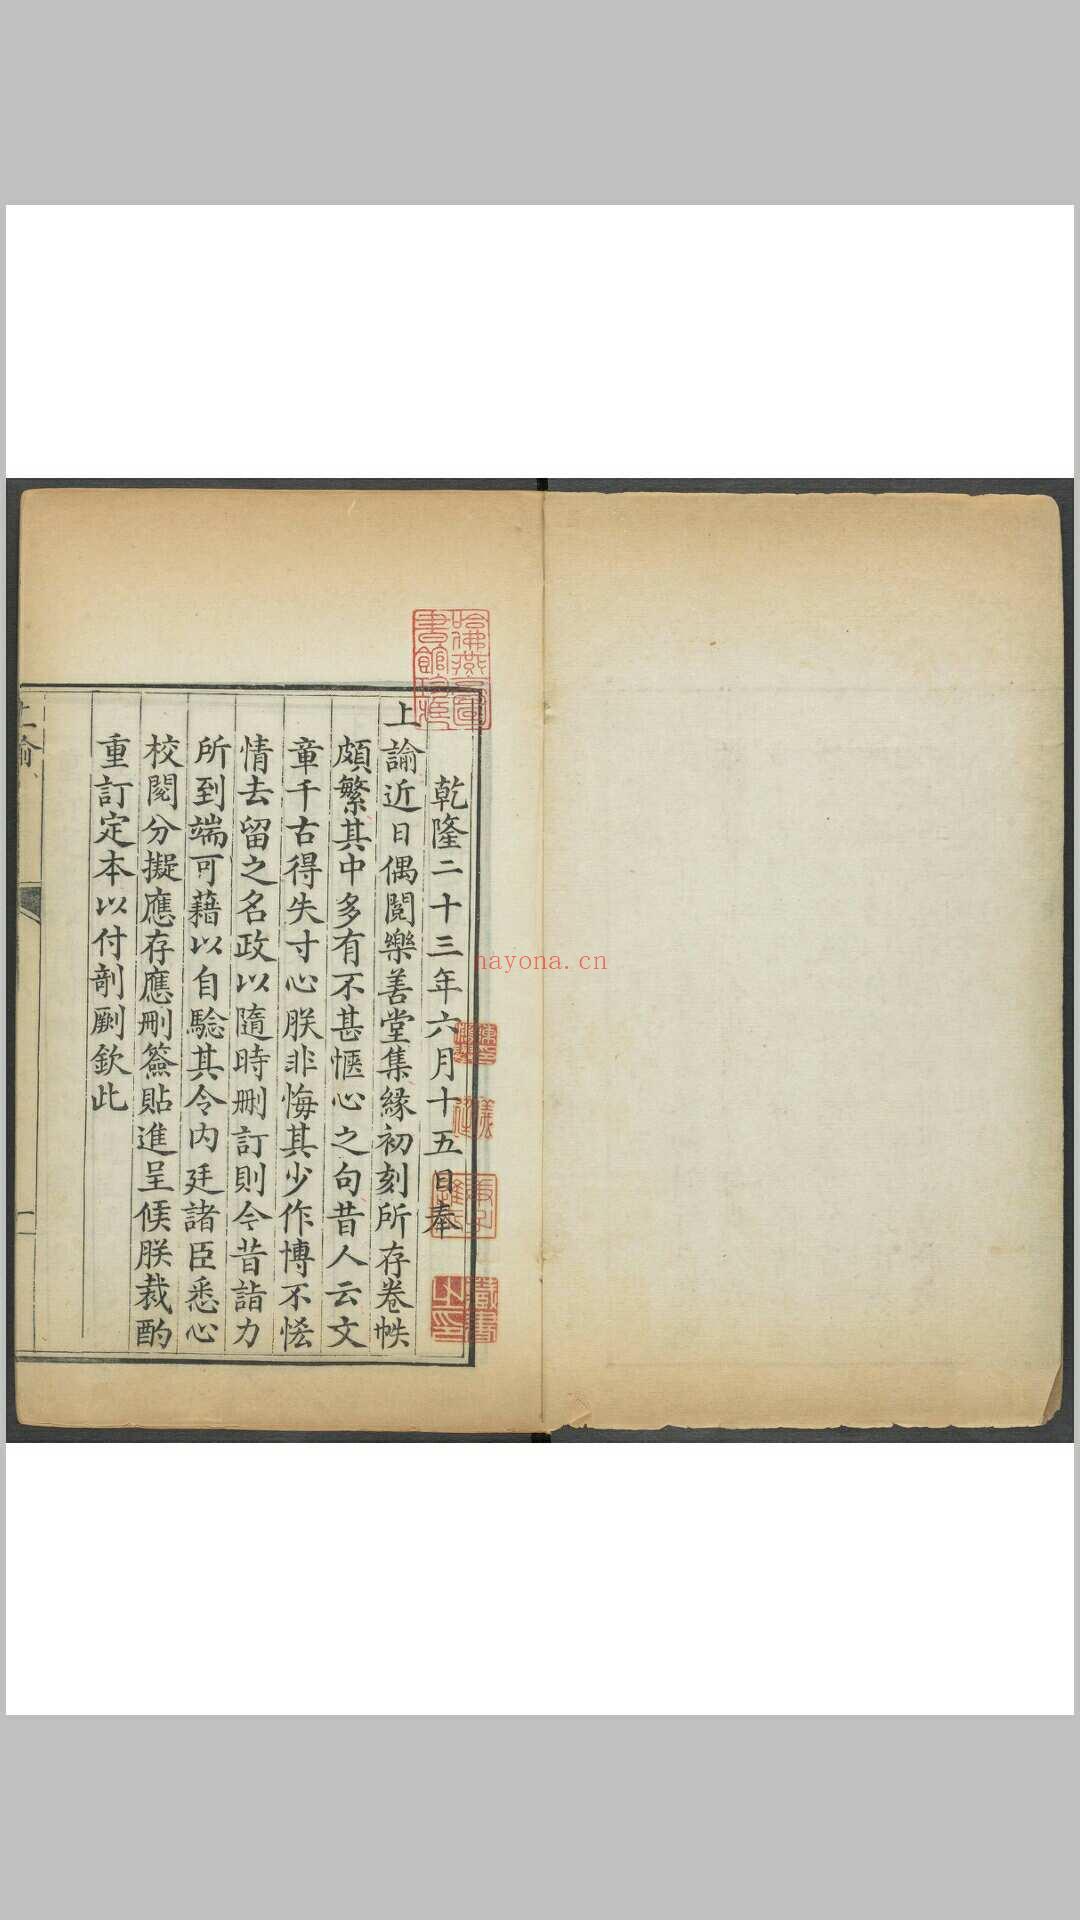 乾隆二十三年六月十五日奉
上諭近日偶閱樂善堂集緣初刻所存卷帙
頗繁其中多有不甚愜心之句昔人云文
章千古得失寸心朕非悔其少作博不恡
情去留之名政以隨時刪訂則今昔詣力
所到端可藉以自驗其令內廷諸臣悉心
校閱分擬應存應刪簽貼進呈候朕裁酌
重訂定本以付剞劂欽此
上諭
一
哈佛燕
圖
書館珍
藏書
之印
nayona.cn